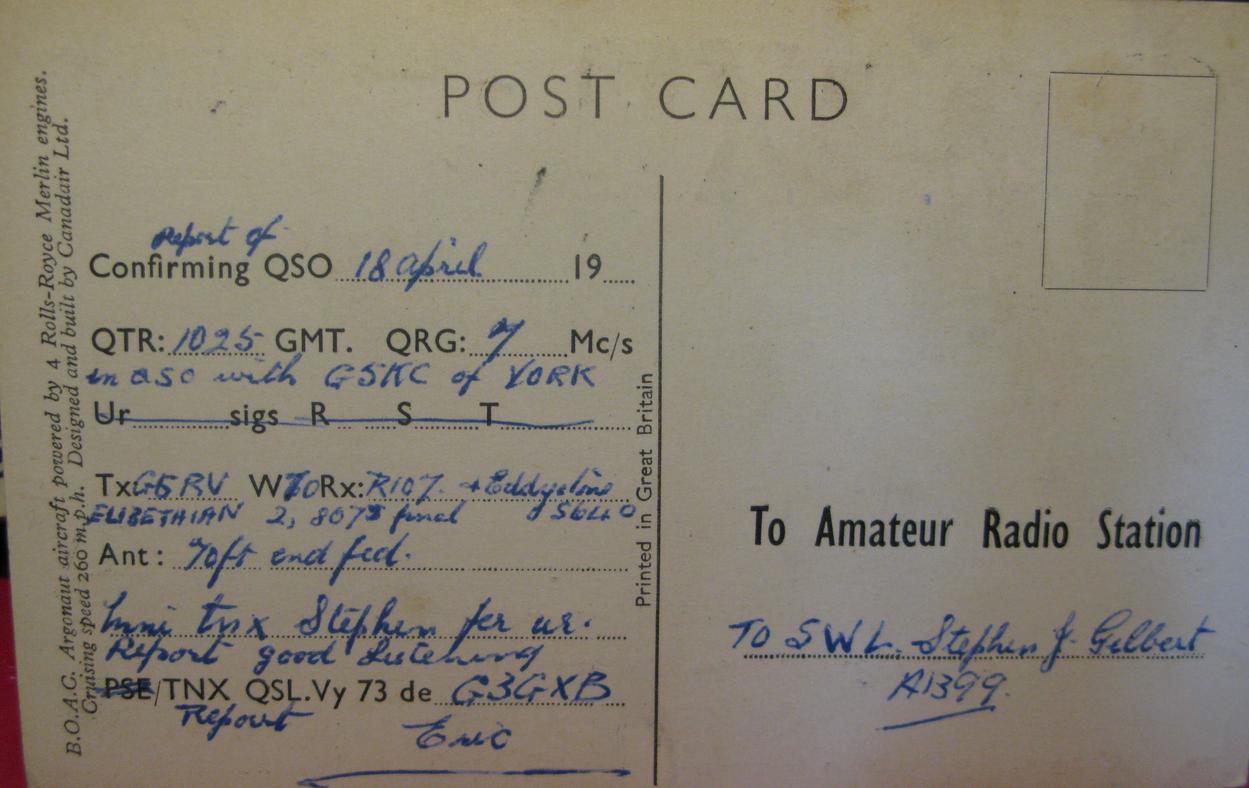 POST CARD
B.O.A.C. Argonaut aircraft powered by 4 Rolls-Royce Merlin engines.
Cruising speed 260 m.p.h. Designed and built by Canadair Ltd.
Report of
Confirming QSO 18 April 19
QTR: 1025 GMT. QRG: 7 Mc/s
in QSO with G5KC of YORK
Ur sigs R S T
Tx G5RV W 70 Rx: R107. + Eddystone
ELIBETHIAN 2, 807s final S640
Ant: 70ft end fed.
tnx Stephen fer ur.
Report good Listening
PSE/TNX QSL. Vy 73 de G3GXB
Report
Eric
Printed in Great Britain
To Amateur Radio Station
TO SWL. Stephen J. Gilbert
A1399.